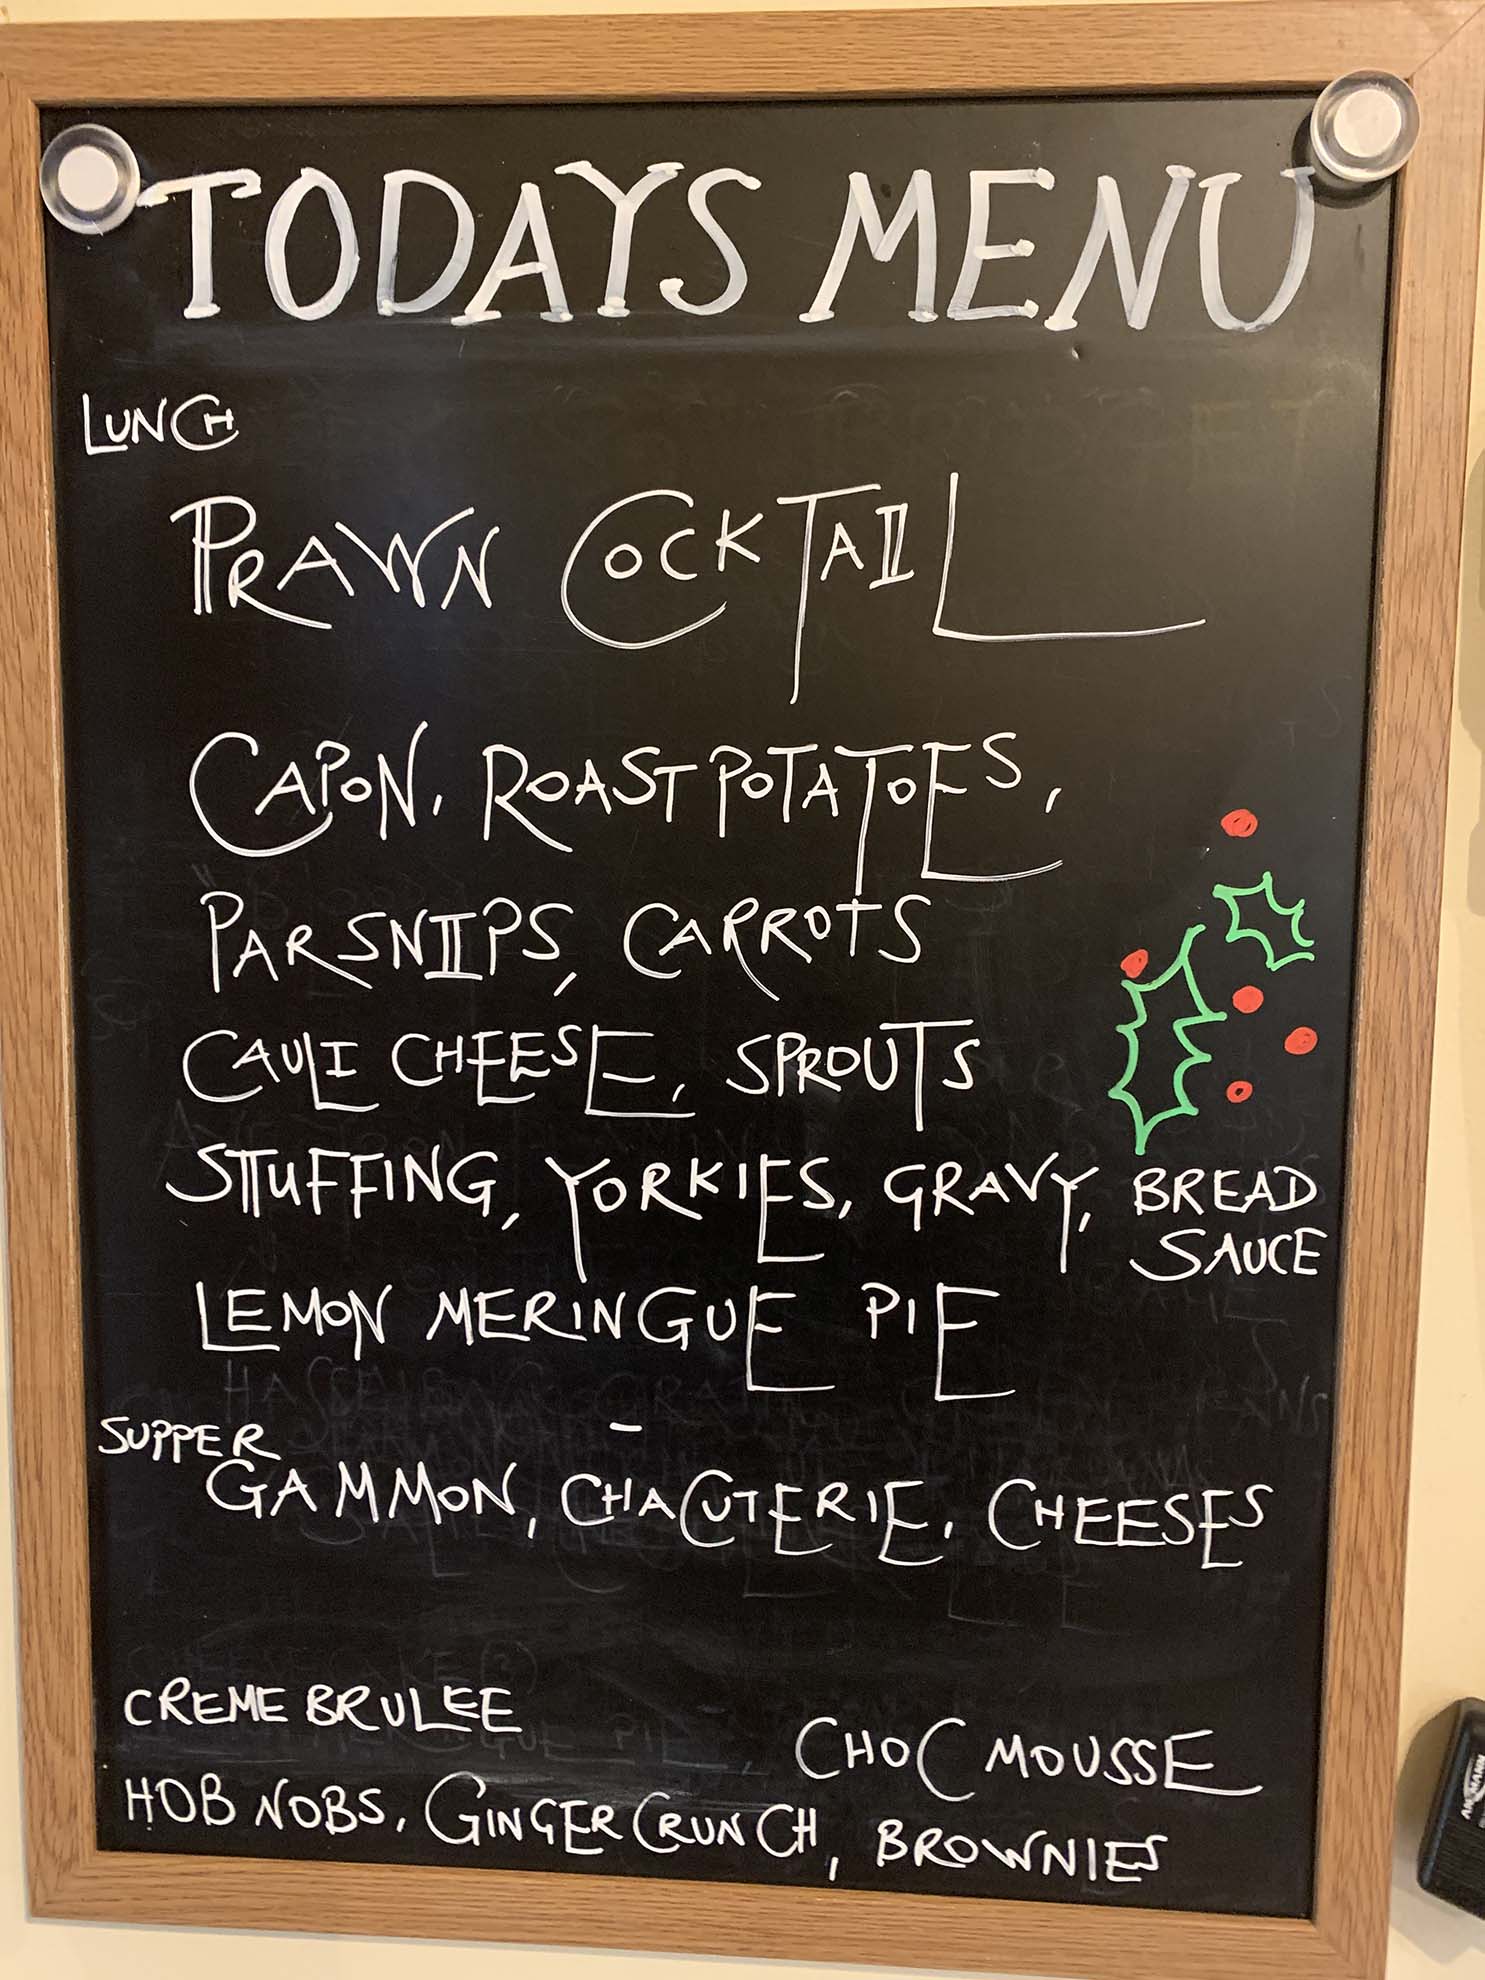 TODAYS MENU
LUNCH
PRAWN COCKTAIL
CAPON, ROAST POTATOES,
PARSNIPS, CARROTS
CAULI CHEESE, SPROUTS
STUFFING, YORKIES, GRAVY, BREAD
SAUCE
LEMON MERINGUE PIE
SUPPER -
GAMMON, CHACUTERIE, CHEESES
CREME BRULEE
CHOC MOUSSE
HOB NOBS, GINGER CRUNCH, BROWNIES